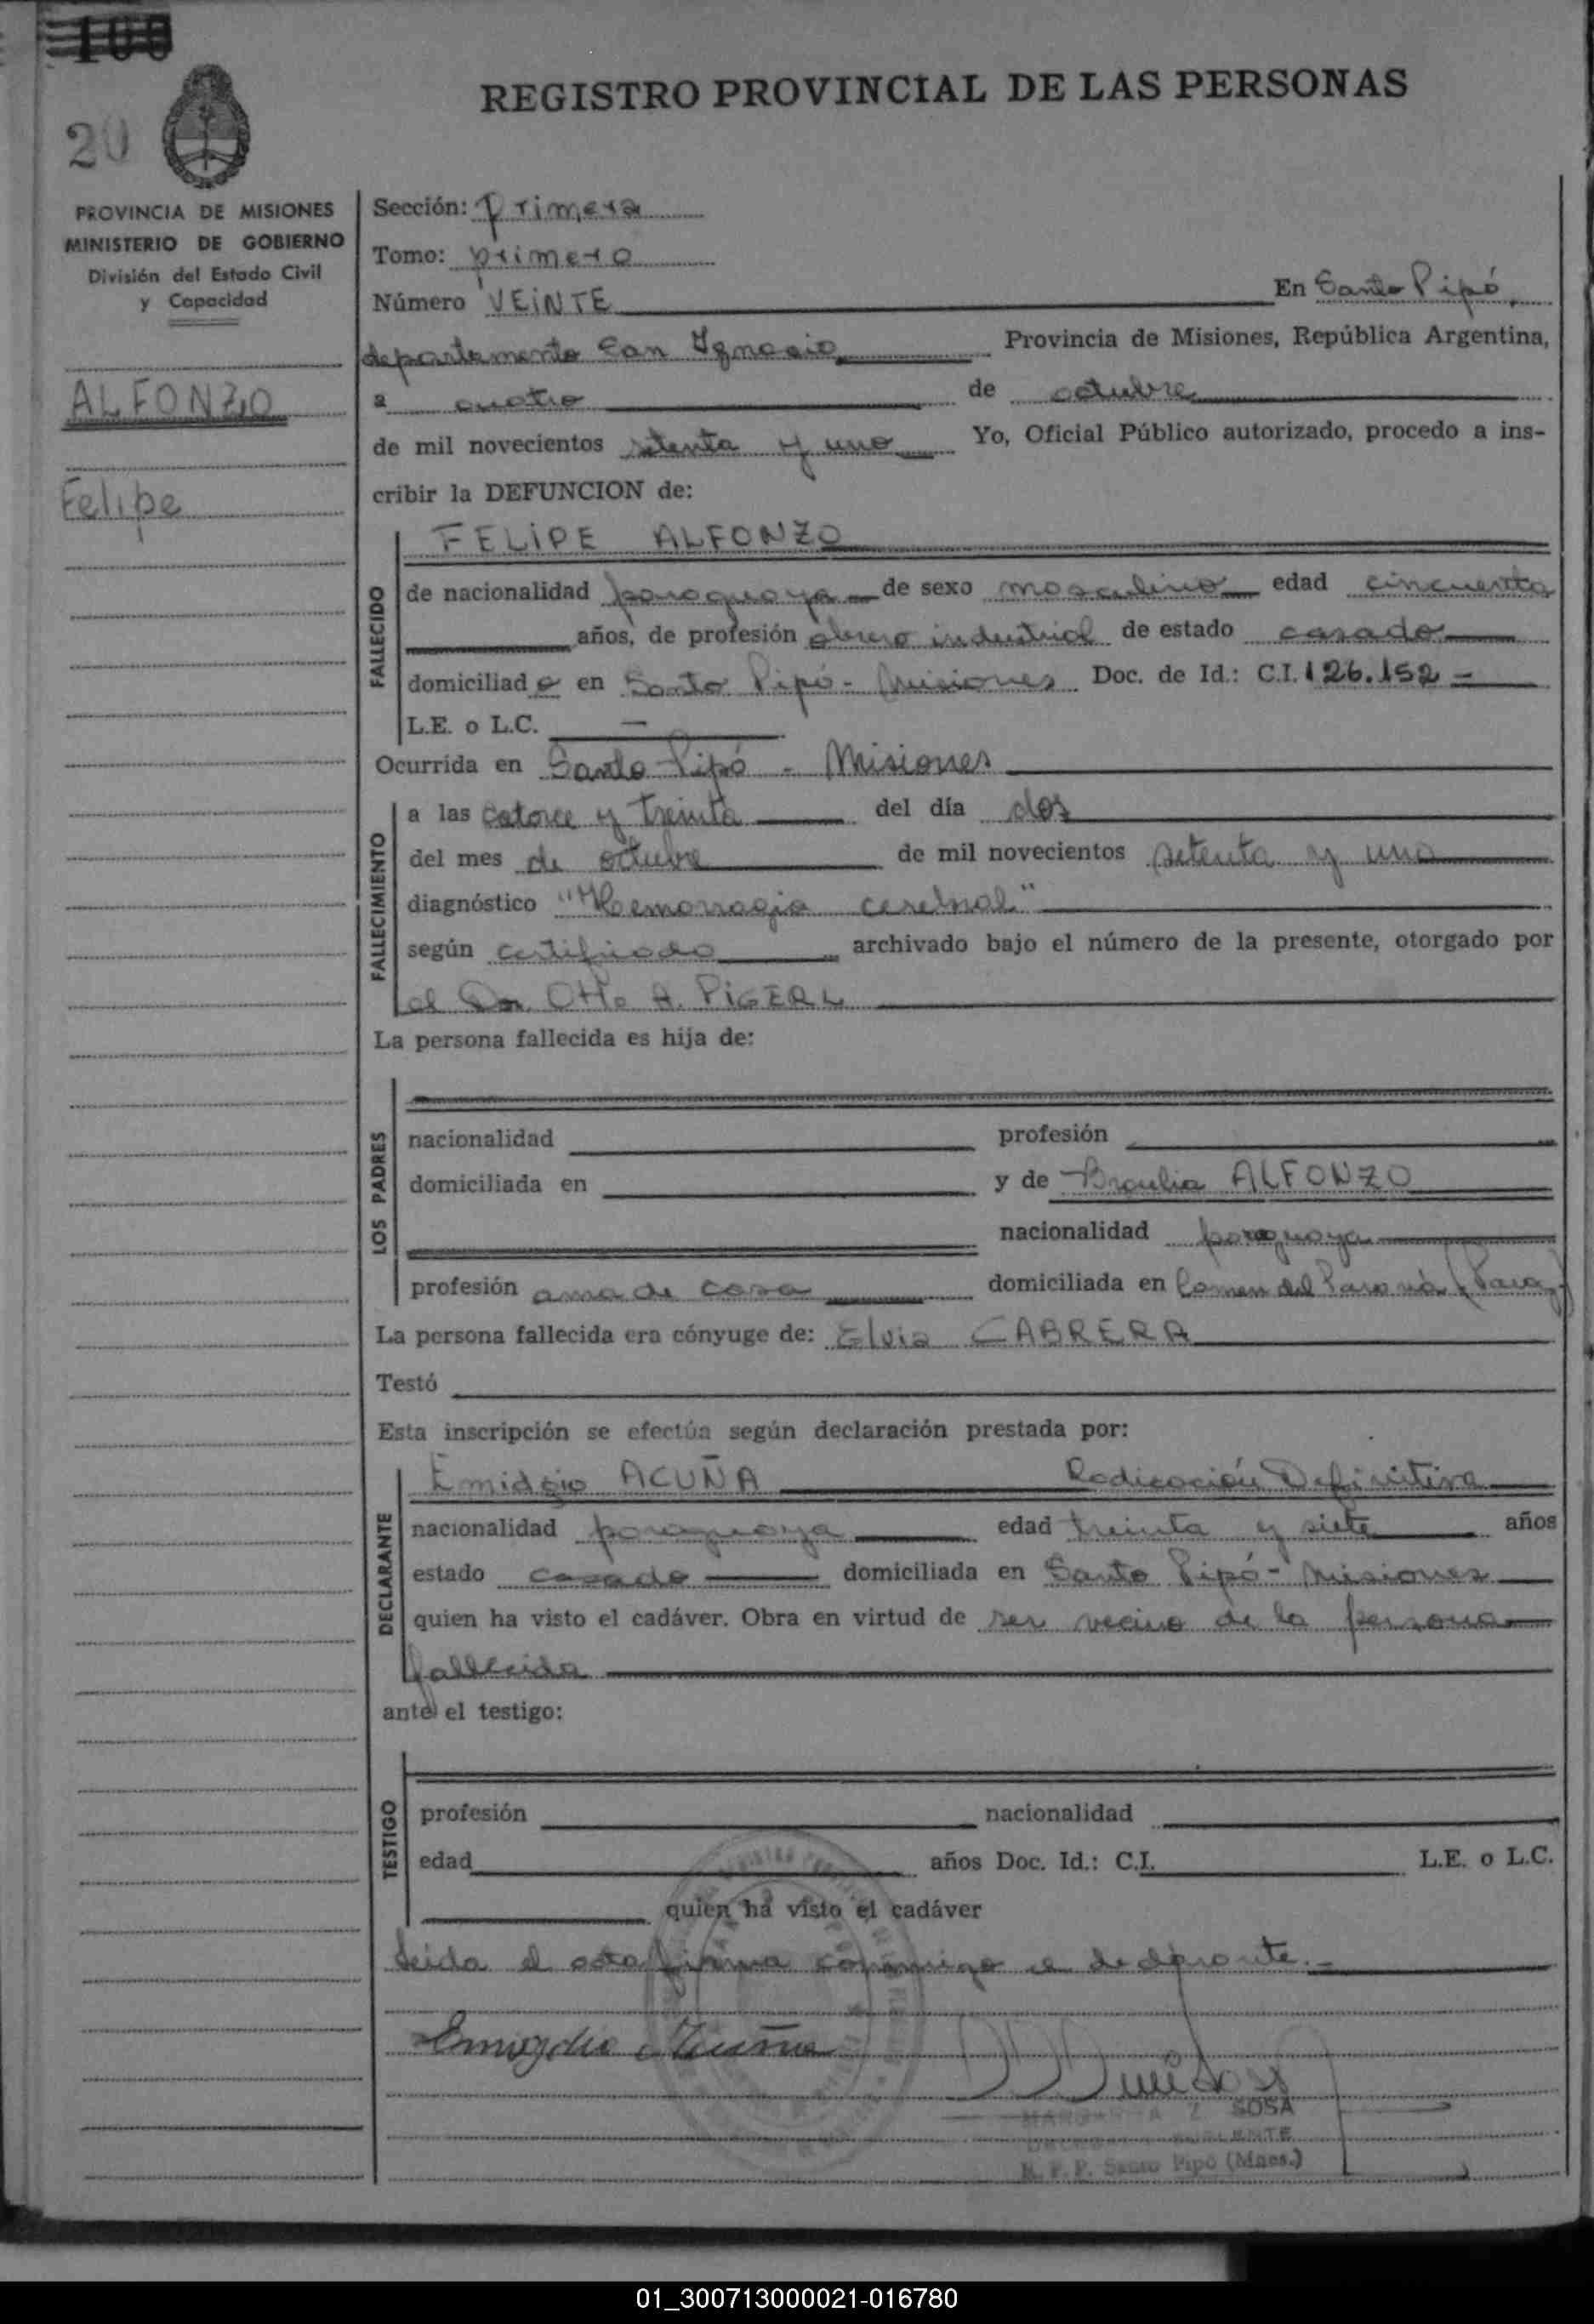 100
20
REGISTRO PROVINCIAL DE LAS PERSONAS
PROVINCIA DE MISIONES
MINISTERIO DE GOBIERNO
División del Estado Civil
y Capacidad
ALFONZO
Felipe
Sección: Primera
Tomo: primero
Número VEINTE En Santo Pipó,
departamento San Ignacio Provincia de Misiones, República Argentina,
a cuatro de octubre
de mil novecientos setenta y uno Yo, Oficial Público autorizado, procedo a ins-
cribir la DEFUNCION de:
FALLECIDO
FELIPE ALFONZO
de nacionalidad paraguaya de sexo masculino edad cincuenta
años, de profesión obrero industrial de estado casado
domiciliado en Santo Pipó - Misiones Doc. de Id.: C.I. 126.152 -
L.E. o L.C. —
Ocurrida en Santo Pipó - Misiones
FALLECIMIENTO
a las catorce y treinta del día dos
del mes de octubre de mil novecientos setenta y uno
diagnóstico "Hemorragia cerebral"
según certificado archivado bajo el número de la presente, otorgado por
el Dr. Otto A. PIGERL
La persona fallecida es hija de:
LOS PADRES
nacionalidad profesión
domiciliada en y de Braulia ALFONZO
nacionalidad paraguaya
profesión ama de casa domiciliada en Carmen del Paraná (Parag)
La persona fallecida era cónyuge de: Elvia CABRERA
Testó
Esta inscripción se efectúa según declaración prestada por:
DECLARANTE
Emidgio ACUÑA Radicación Definitiva
nacionalidad paraguaya edad treinta y siete años
estado casado domiciliada en Santo Pipó - Misiones
quien ha visto el cadáver. Obra en virtud de ser vecino de la persona
fallecida
ante el testigo:
TESTIGO
profesión nacionalidad
edad años Doc. Id.: C.I. L.E. o L.C.
quien ha visto el cadáver
Leida el acta firma conmigo el declarante.-
Emigdio Acuña
MARGARITA Z SOSA
R. P. P. Santo Pipó (Mnes.)
01_300713000021-016780